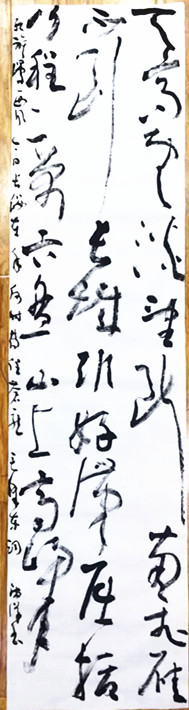 天高云淡望断南飞雁
不到长城非好汉屈指
行程二万六盘山上高峰
红旗漫卷西风今日长缨在手何时缚住苍龙毛泽东词